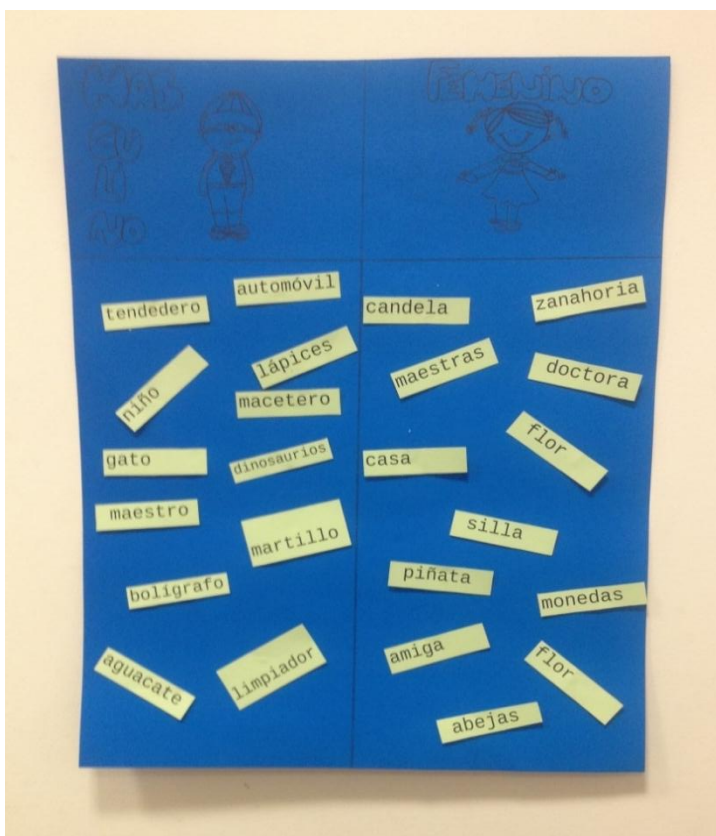 MAS
CU
LI
NO
FEMENINO
tendedero
automóvil
niño
lápices
macetero
gato
dinosaurios
maestro
martillo
bolígrafo
aguacate
limpiador
candela
zanahoria
maestras
doctora
flor
casa
silla
piñata
monedas
amiga
flor
abejas